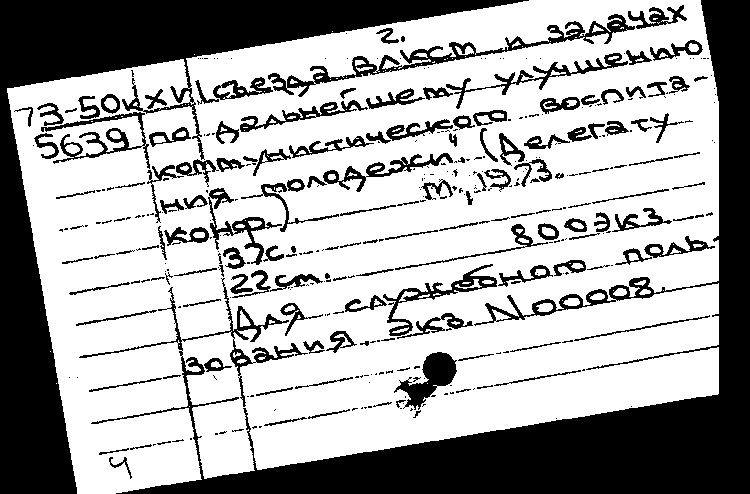 2.
73-50к XVI съезда ВЛКСМ и задачах
5639 по дальнейшему улучшению
коммунистического воспита-
ния молодежи". (Делегату
конф.). М., 1973.
37с.
22см. 800экз.
Для служебного поль-
зования. Экз. N00008.
4